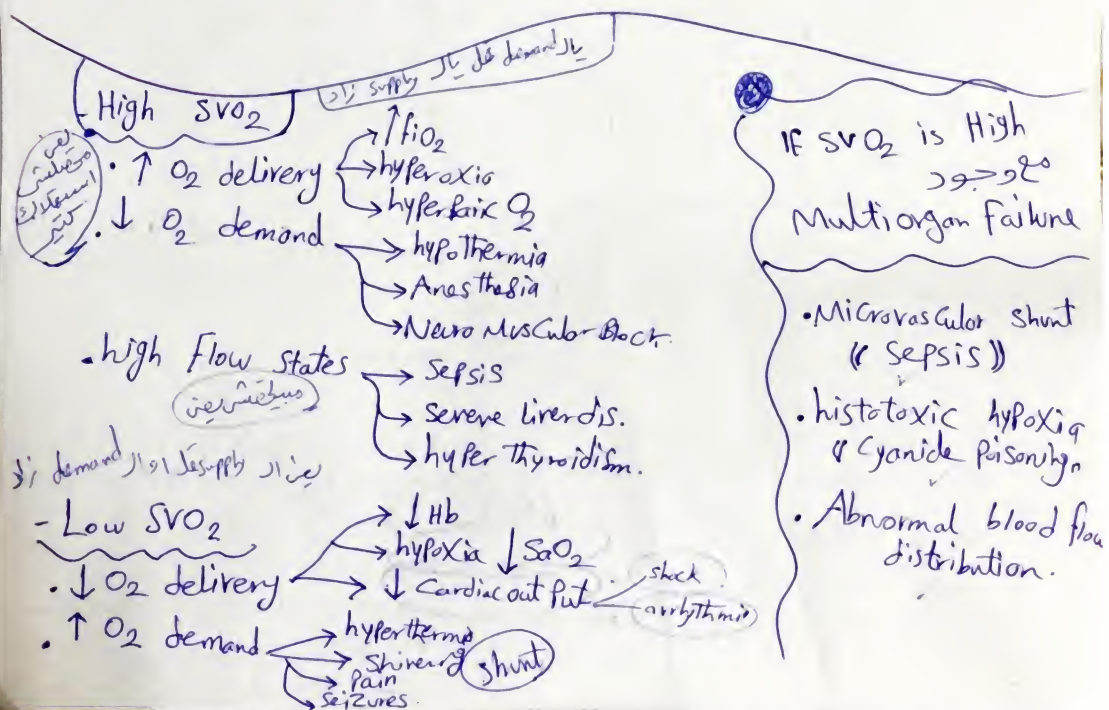 يا الـ demand قل يا الـ supply زاد
- High SVO₂
يعني محصلش استهلاك كتير
• ↑ O₂ delivery
↑ fiO₂
hyperoxia
• ↓ O₂ demand
hypothermia
Anesthesia
Neuro Muscular Block.
• high Flow States
Sepsis
يعني
severe liver dis.
hyper Thyroidism.
يعني الـ supply قل او الـ demand زاد
- Low SVO₂
• ↓ O₂ delivery
↓ Hb
hypoxia ↓ SaO₂
↓ Cardiac out Put
shock
arrhythmia
• ↑ O₂ demand
hyperthermia
Shivering
shunt
Pain
Seizures.
IF SVO₂ is High
مع وجود
Multiorgan Failure
• Microvascular shunt
(( Sepsis ))
• histotoxic hypoxia
(( Cyanide Poisoning
• Abnormal blood flow
distribution.